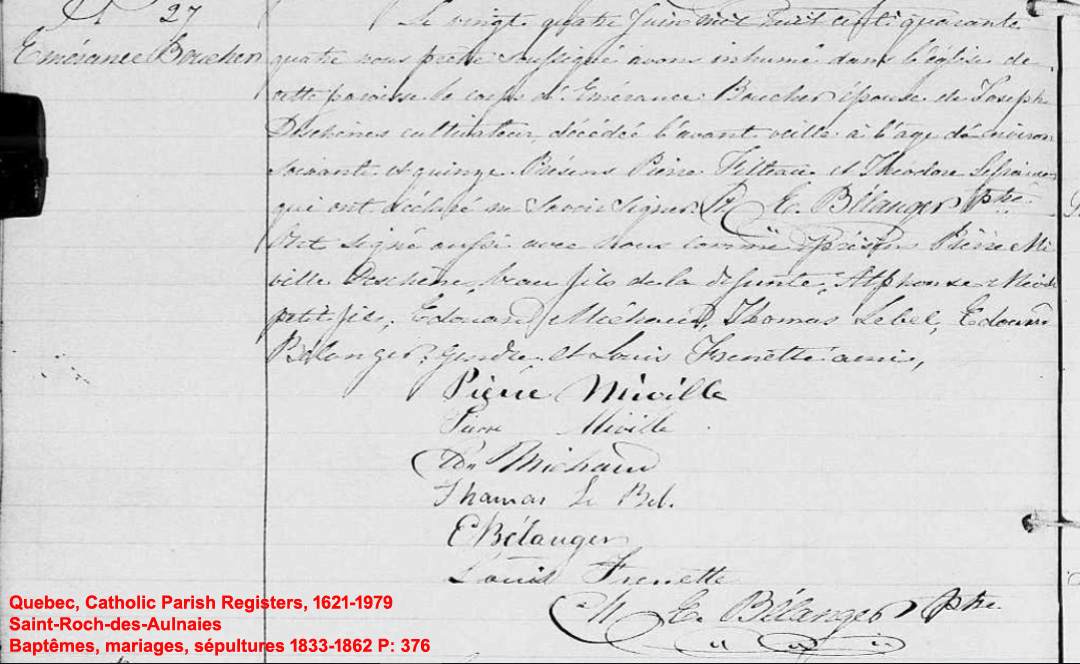 27
Emérance Boucher
Le vingt quatre Juin mil huit cent quarante
quatre nous prêtre soussigné avons inhumé dans l'église de
cette paroisse le corps d'Emérance Boucher épouse de Joseph
Deschènes cultivateur, décédée l'avant veille à l'âge d'environ
soixante et quinze. Présens Pierre Filteau et Théodore
qui ont déclaré ne savoir signer. E. Bélanger ptre
Ont signé aussi avec nous comme présens Pierre Mi-
ville Deschène, beau fils de la défunte, Alphonse
petit fils, Edouard Michaud, Thomas Lebel, Edouard
Bélanger, gendre et Louis Frenette ami,
Pierre Miville
Pierre Miville
Edn Michaud
Thomas Le Bel.
E Bélanger
Louis Frenette
E. Bélanger ptre
Quebec, Catholic Parish Registers, 1621-1979
Saint-Roch-des-Aulnaies
Baptêmes, mariages, sépultures 1833-1862 P: 376